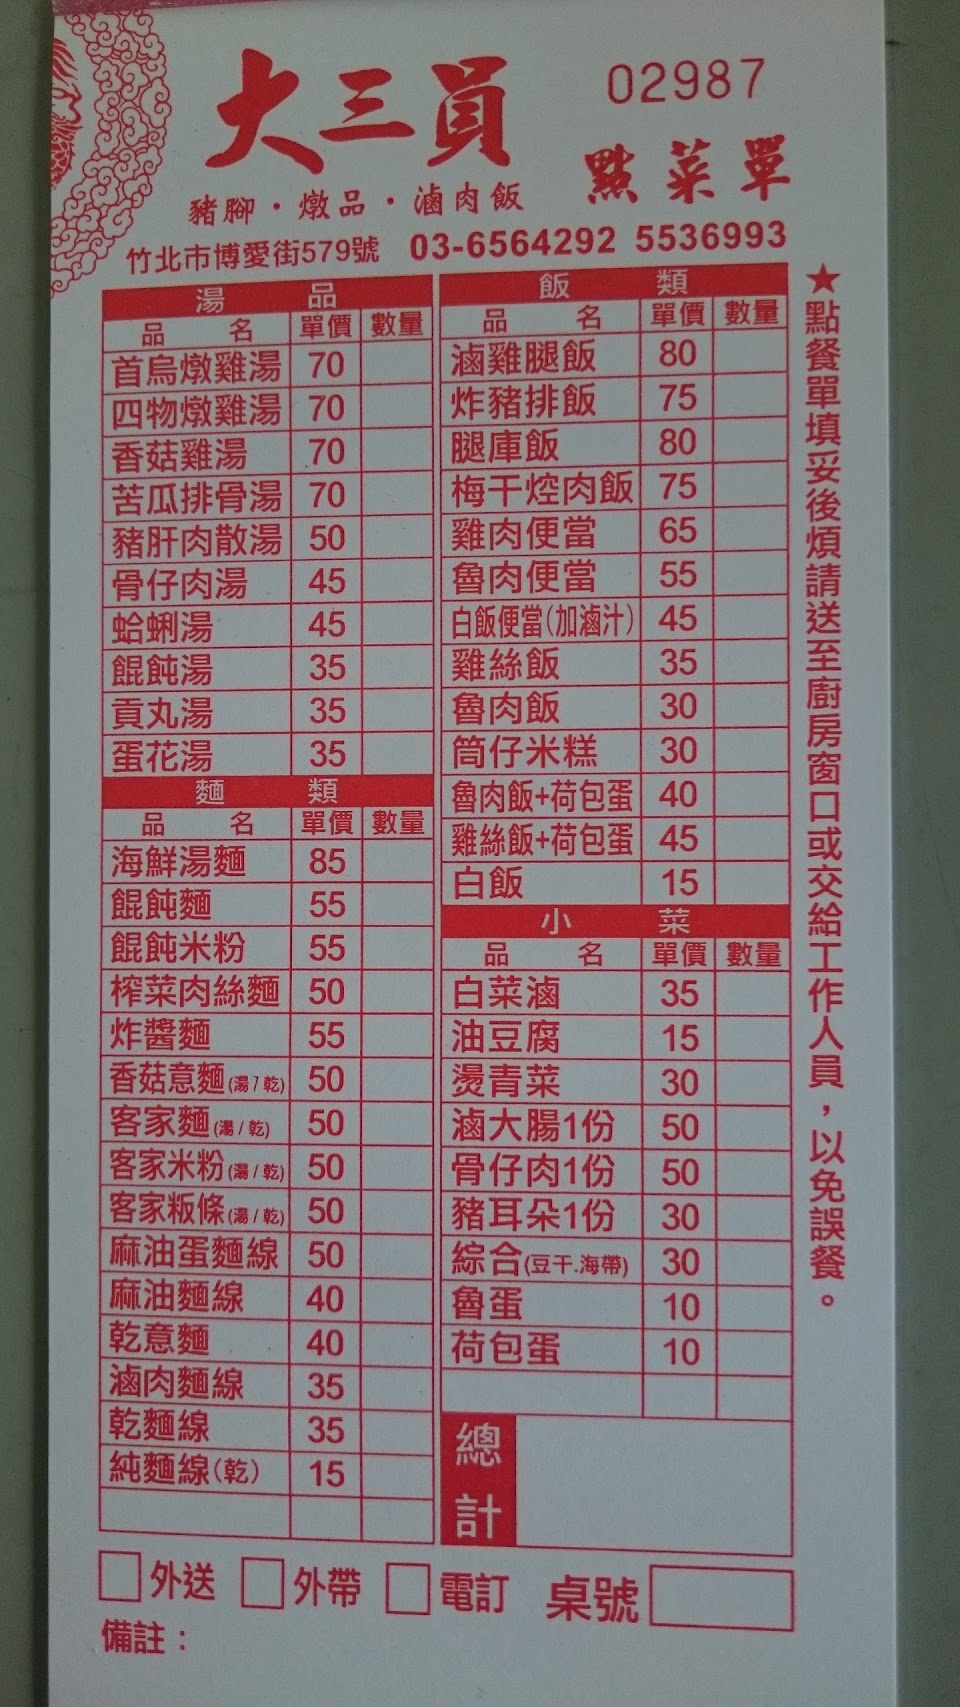 大三員
02987
點菜單
豬腳·燉品·滷肉飯
竹北市博愛街579號 03-6564292 5536993
湯品
品名 單價 數量
首烏燉雞湯 70
四物燉雞湯 70
香菇雞湯 70
苦瓜排骨湯 70
豬肝肉散湯 50
骨仔肉湯 45
蛤蜊湯 45
餛飩湯 35
貢丸湯 35
蛋花湯 35
麵類
品名 單價 數量
海鮮湯麵 85
餛飩麵 55
餛飩米粉 55
榨菜肉絲麵 50
炸醬麵 55
香菇意麵(湯/乾) 50
客家麵(湯/乾) 50
客家米粉(湯/乾) 50
客家粄條(湯/乾) 50
麻油蛋麵線 50
麻油麵線 40
乾意麵 40
滷肉麵線 35
乾麵線 35
純麵線(乾) 15
飯類
品名 單價 數量
滷雞腿飯 80
炸豬排飯 75
腿庫飯 80
梅干焢肉飯 75
雞肉便當 65
魯肉便當 55
白飯便當(加滷汁) 45
雞絲飯 35
魯肉飯 30
筒仔米糕 30
魯肉飯+荷包蛋 40
雞絲飯+荷包蛋 45
白飯 15
小菜
品名 單價 數量
白菜滷 35
油豆腐 15
燙青菜 30
滷大腸1份 50
骨仔肉1份 50
豬耳朵1份 30
綜合(豆干.海帶) 30
魯蛋 10
荷包蛋 10
總計
★點餐單填妥後煩請送至廚房窗口或交給工作人員，以免誤餐。
外送 外帶 電訂 桌號
備註：